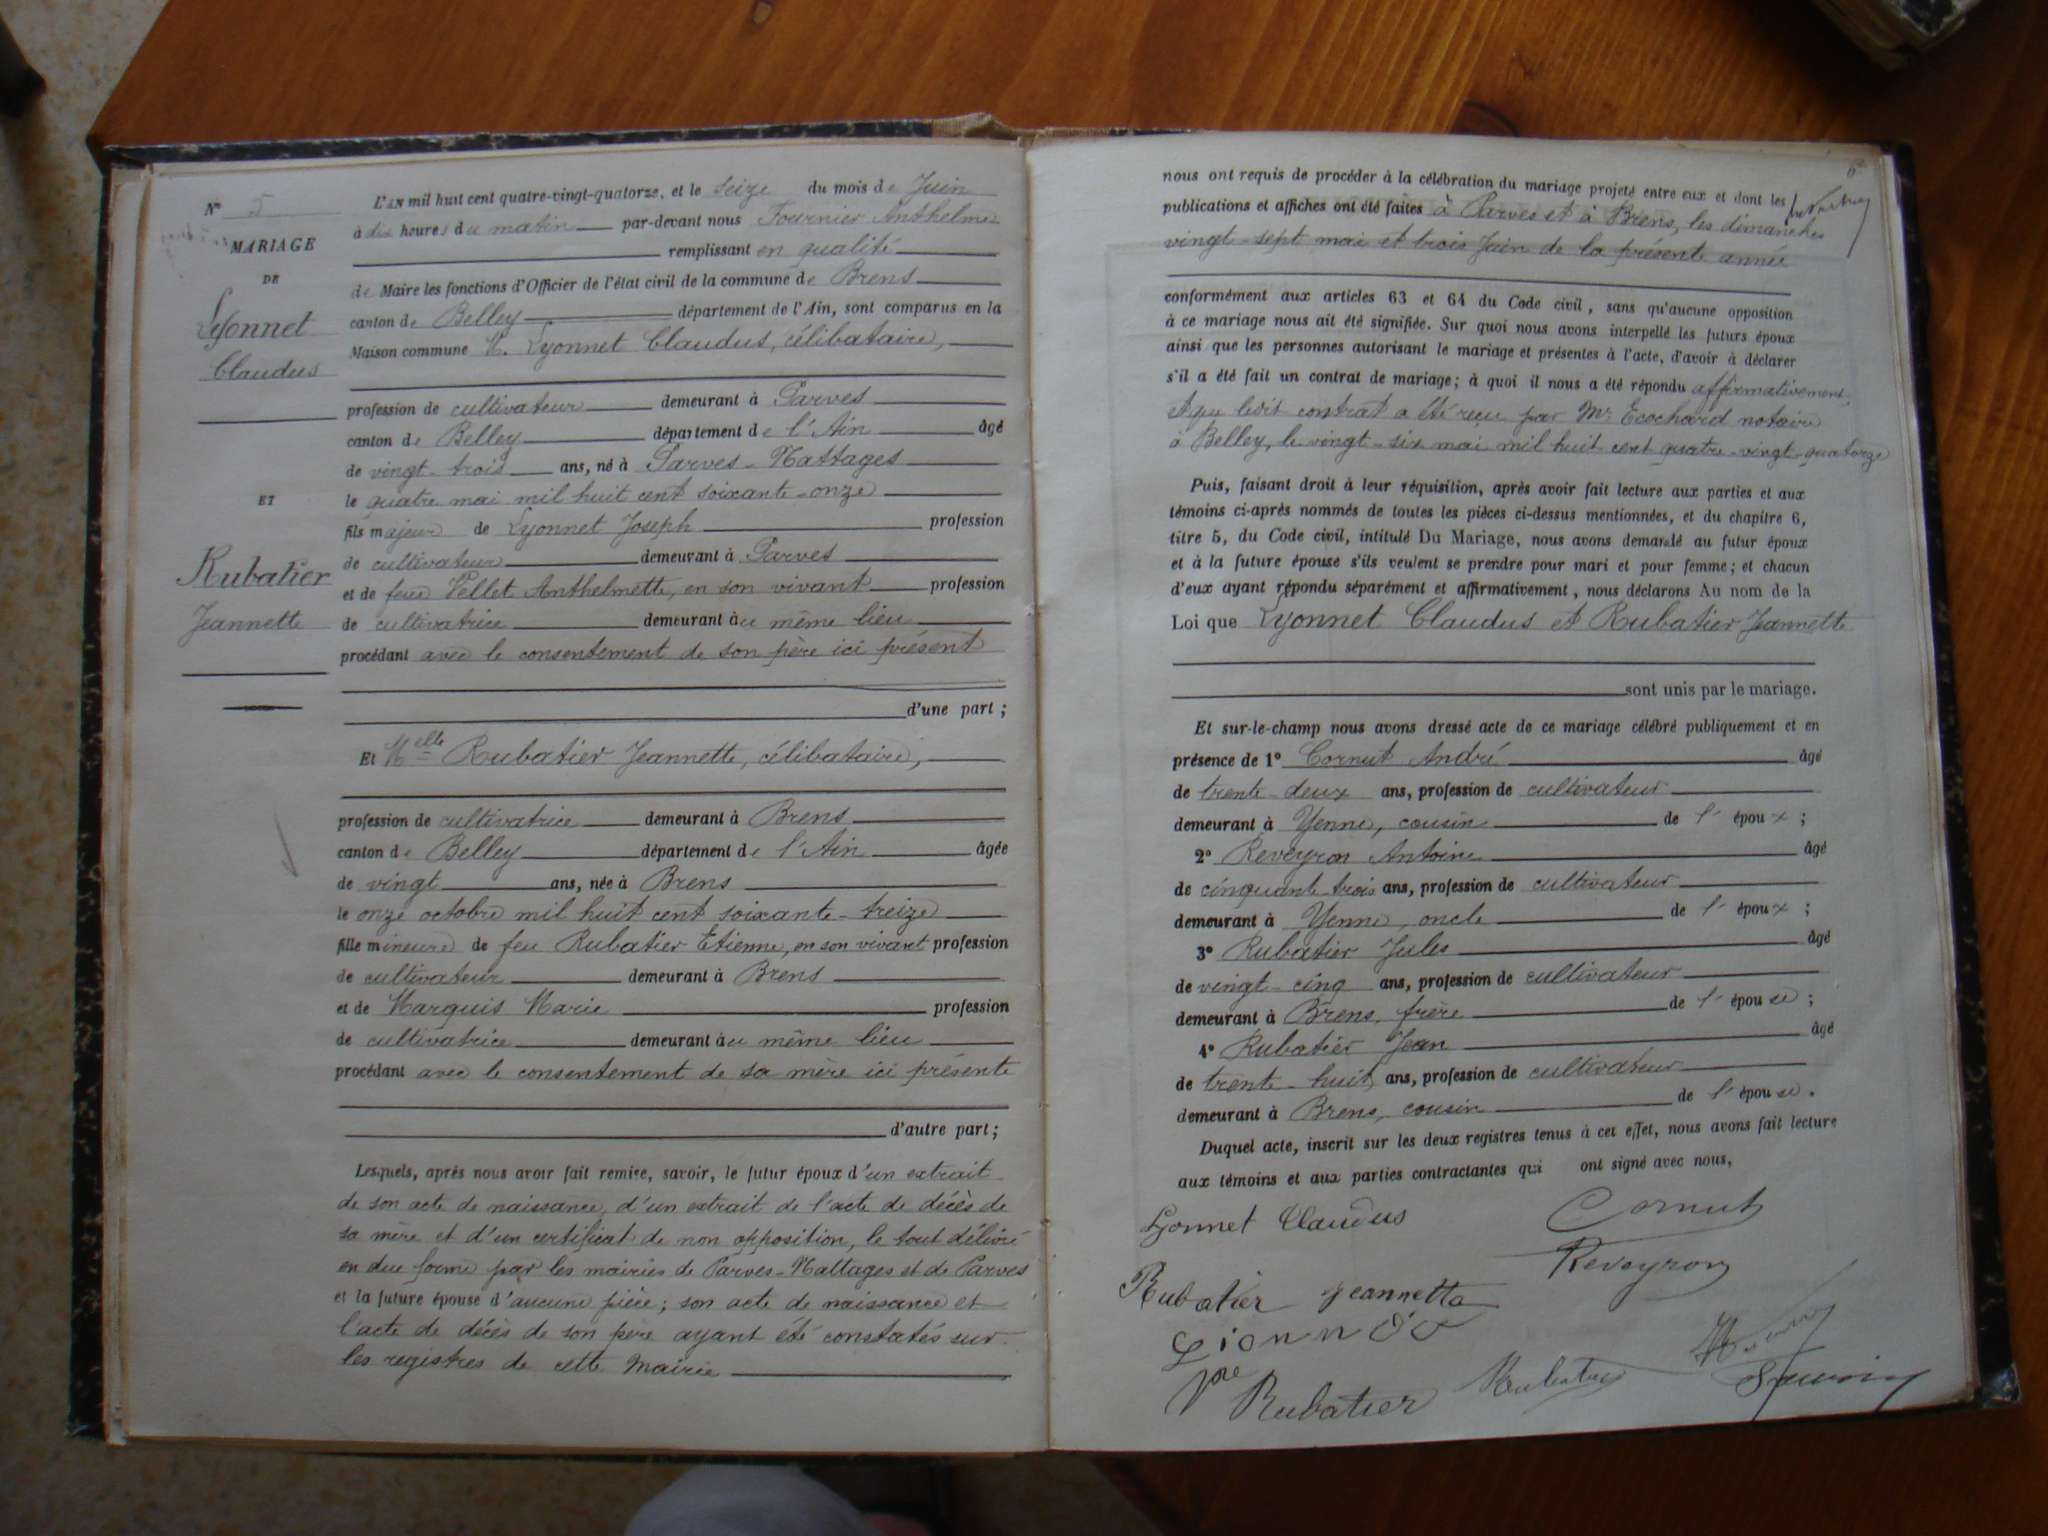 N° 5
MARIAGE
DE
Lyonnet
Claudus
ET
Rubatier
Jeannette
L'AN mil huit cent quatre-vingt-quatorze, et le seize du mois de Juin
à dix heures du matin par-devant nous Fournier Anthelme
remplissant en qualité
de Maire les fonctions d'Officier de l'état civil de la commune de Brens
canton de Belley département de l'Ain, sont comparus en la
Maison commune M. Lyonnet Claudus, célibataire,
profession de cultivateur demeurant à Parves
canton de Belley département de l'Ain âgé
de vingt-trois ans, né à Parves-Nattages
le quatre mai mil huit cent soixante-onze
fils majeur de Lyonnet Joseph profession
de cultivateur demeurant à Parves
et de feue Vellet Anthelmette, en son vivant profession
de cultivatrice demeurant au même lieu
procédant avec le consentement de son père ici présent
d'une part ;
Et Melle Rubatier Jeannette, célibataire,
profession de cultivatrice demeurant à Brens
canton de Belley département de l'Ain âgée
de vingt ans, née à Brens
le onze octobre mil huit cent soixante-treize
fille mineure de feu Rubatier Etienne, en son vivant profession
de cultivateur demeurant à Brens
et de Marquis Marie profession
de cultivatrice demeurant au même lieu
procédant avec le consentement de sa mère ici présente
d'autre part ;
Lesquels, après nous avoir fait remise, savoir, le futur époux d'un extrait
de son acte de naissance, d'un extrait de l'acte de décès de
sa mère et d'un certificat de non opposition, le tout délivré
en due forme par les mairies de Parves-Nattages et de Parves
et la future épouse d'aucune pièce ; son acte de naissance et
l'acte de décès de son père ayant été constatés sur
les registres de cette mairie
nous ont requis de procéder à la célébration du mariage projeté entre eux et dont les
publications et affiches ont été faites à Parves et à Brens, les dimanches
vingt-sept mai et trois Juin de la présente année
conformément aux articles 63 et 64 du Code civil, sans qu'aucune opposition
à ce mariage nous ait été signifiée. Sur quoi nous avons interpellé les futurs époux
ainsi que les personnes autorisant le mariage et présentes à l'acte, d'avoir à déclarer
s'il a été fait un contrat de mariage ; à quoi il nous a été répondu affirmativement,
et que ledit contrat a été reçu par Me Ecochard notaire
à Belley, le vingt-six mai mil huit cent quatre-vingt-quatorze
Puis, faisant droit à leur réquisition, après avoir fait lecture aux parties et aux
témoins ci-après nommés de toutes les pièces ci-dessus mentionnées, et du chapitre 6,
titre 5, du Code civil, intitulé Du Mariage, nous avons demandé au futur époux
et à la future épouse s'ils veulent se prendre pour mari et pour femme ; et chacun
d'eux ayant répondu séparément et affirmativement, nous déclarons Au nom de la
Loi que Lyonnet Claudus et Rubatier Jeannette
sont unis par le mariage.
Et sur-le-champ nous avons dressé acte de ce mariage célébré publiquement et en
présence de 1° Cornut André âgé
de trente-deux ans, profession de cultivateur
demeurant à Yenne, cousin de l'époux ;
2° Reveyron Antoine âgé
de cinquante trois ans, profession de cultivateur
demeurant à Yenne, oncle de l'époux ;
3° Rubatier Jules âgé
de vingt-cinq ans, profession de cultivateur
demeurant à Brens, frère de l'épouse ;
4° Rubatier Jean âgé
de trente-huit ans, profession de cultivateur
demeurant à Brens, cousin de l'épouse.
Duquel acte, inscrit sur les deux registres tenus à cet effet, nous avons fait lecture
aux témoins et aux parties contractantes qui ont signé avec nous,
Lyonnet Claudus
Cornut
Reveyron
Rubatier Jeannette
Rubatier
Rubatier